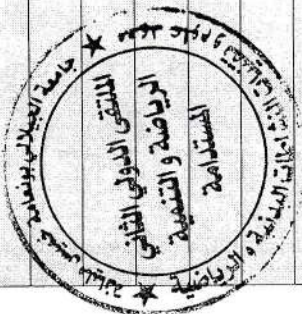 جامعة الجيلالي بونعامة خميس مليانة
معهد علوم و تقنيات النشاطات البدنية و الرياضية
الملتقى الدولي الثاني
الرياضة و التنمية
المستدامة